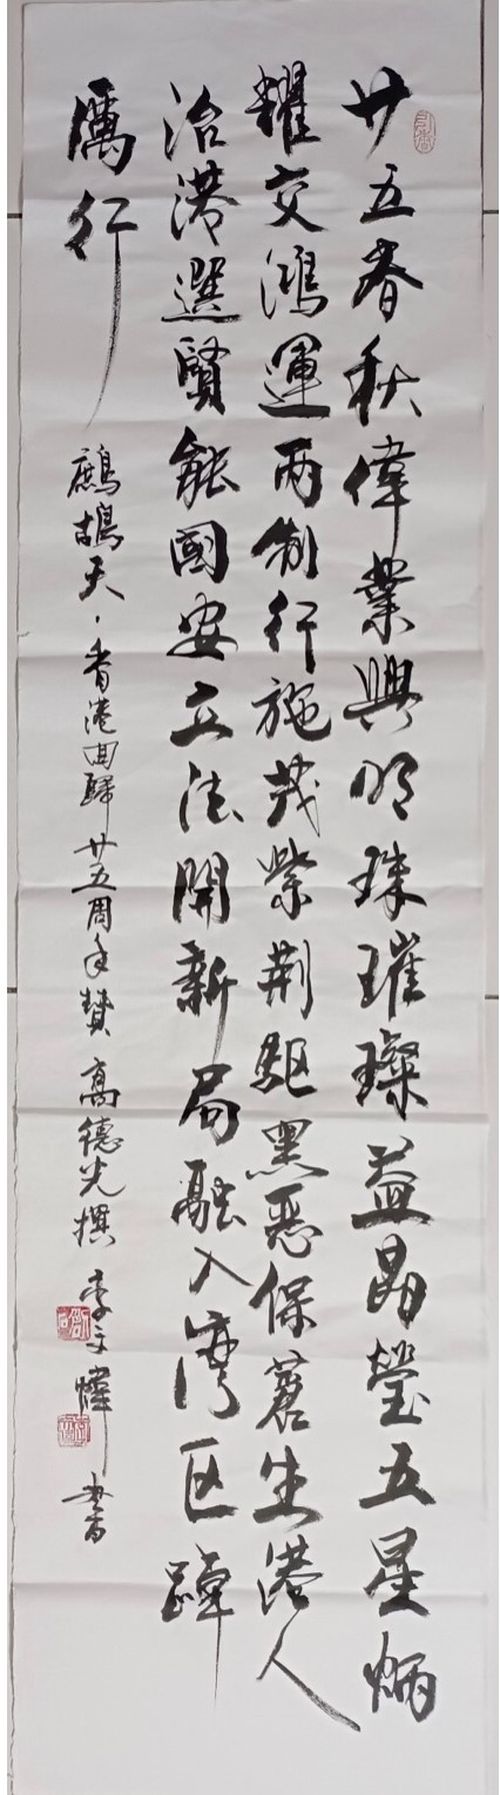 廿五春秋偉業興明珠璀璨益晶瑩五星炳
耀交鴻運兩制行施茂紫荆驅黑惡保蒼生港人
治港選賢能國安立法開新局融入灣区踔
厲行
鷓鴣天·香港回歸廿五周年贊 高德光撰 李文煒書